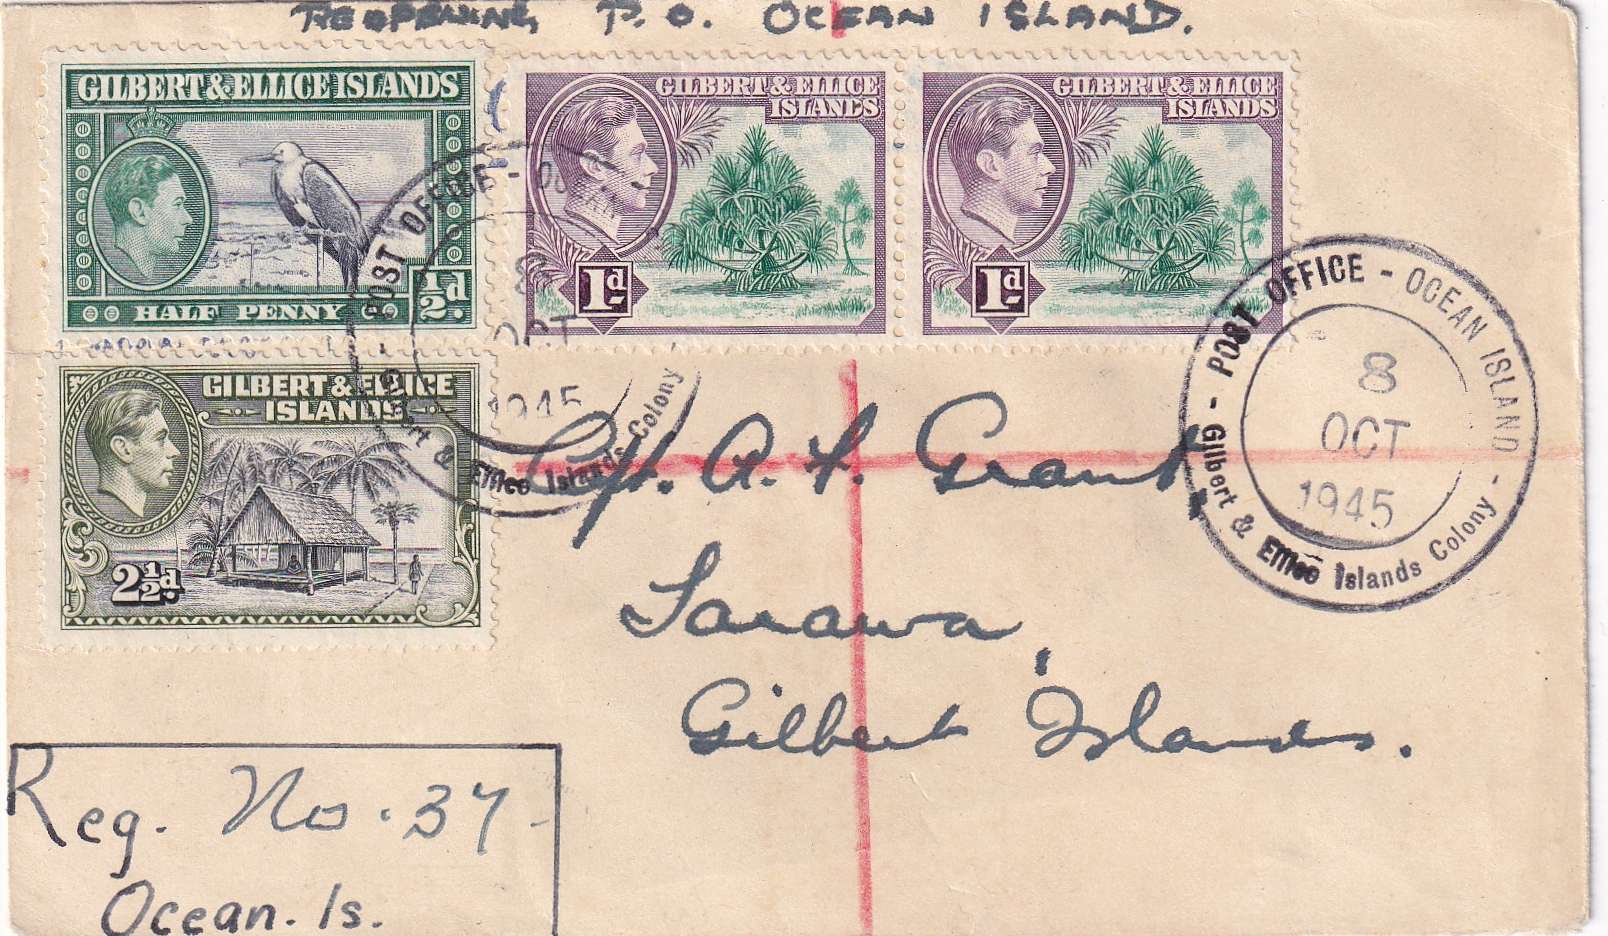 REOPENING P.O. OCEAN ISLAND.
GILBERT & ELLICE ISLANDS
HALF PENNY
½d.
GILBERT & ELLICE
ISLANDS
1d
GILBERT & ELLICE
ISLANDS
1d
GILBERT & ELLICE
ISLANDS
2½d.
POST OFFICE - OCEAN
8
OCT
1945
Gilbert & Ellice Islands Colony
POST OFFICE - OCEAN ISLAND -
8
OCT
1945
Gilbert & Ellice Islands Colony -
Cpt. A. F. Grant,
Tarawa,
Gilbert Islands.
Reg. No. 37
Ocean. Is.